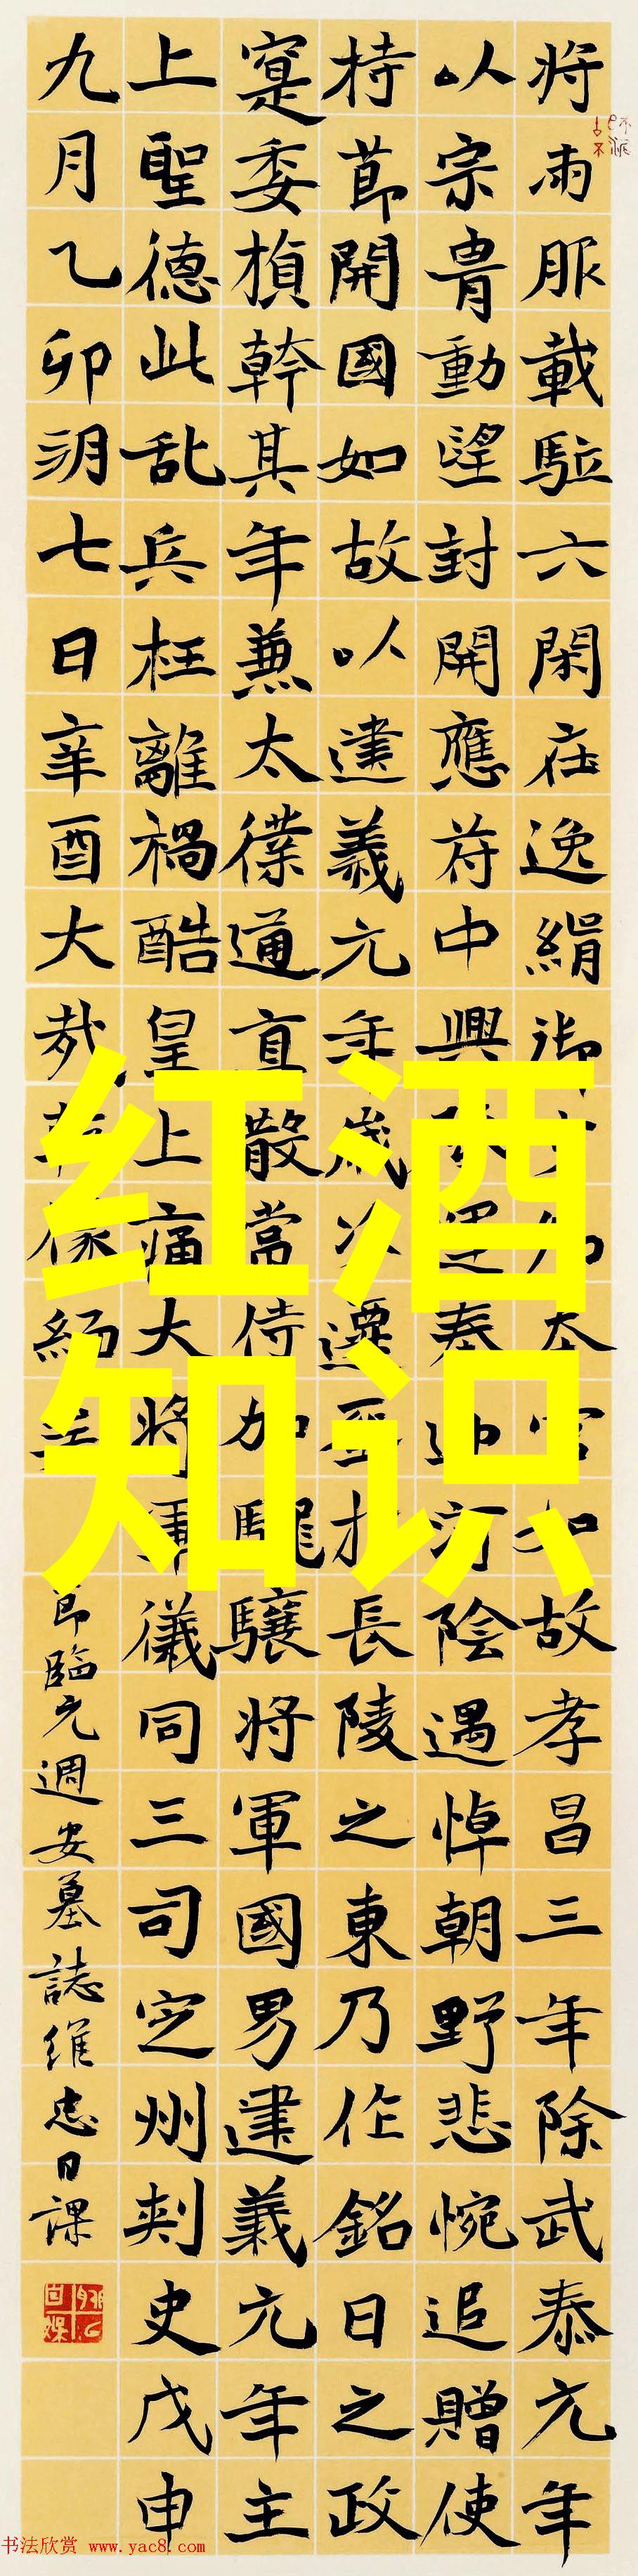 将雨服载駈六閑在逸絹
故孝昌三年除武泰元年
以宗胄動望封開應符中興
奉迎河陰遇悼朝野悲惋追贈使
持節開國如故以建義元年歲次
長陵之東乃作銘曰之政
寔委楨幹其年兼太僕道直散常侍加
驤将軍國男建義元年主
上聖德此乱兵枉離禍酷皇上痛大将軍
儀同三司定州刺史戊申
九月乙卯朔七日辛酉大
節臨元週安墓誌維忠日課
红酒
知识
书法欣赏 www.yac8.com